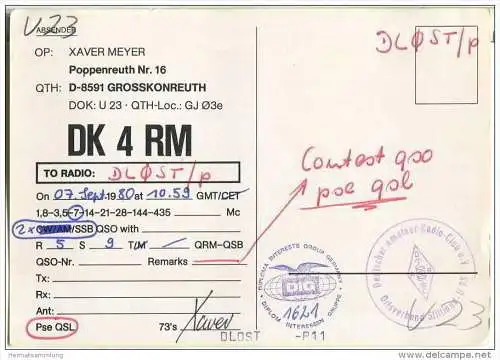 U23
ABSENDER
DLØST/p
OP: XAVER MEYER
Poppenreuth Nr. 16
QTH: D-8591 GROSSKONREUTH
DOK: U 23 · QTH-Loc.: GJ Ø3e
DK 4 RM
TO RADIO: DLØST/p
On 07. Sept. 1980 at 10.59 GMT/CET
1,8-3,5-7-14-21-28-144-435 Mc
2x CW/AM/SSB QSO with
R 5 S 9 T/M — QRM-QSB
QSO-Nr. Remarks
Tx:
Rx:
Ant:
Pse QSL 73's Xaver
Contest qso
pse qsl
DIPLOMA INTERESTS GROUP GERMANY
DIG
1621
DIPLOM INTERESSEN GRUPPE
Deutscher Amateur-Radio-Club e.V.
Ortsverband
U23
DLOST -P11